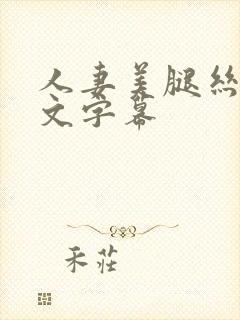 人妻美腿絲
文字幕
禾莊